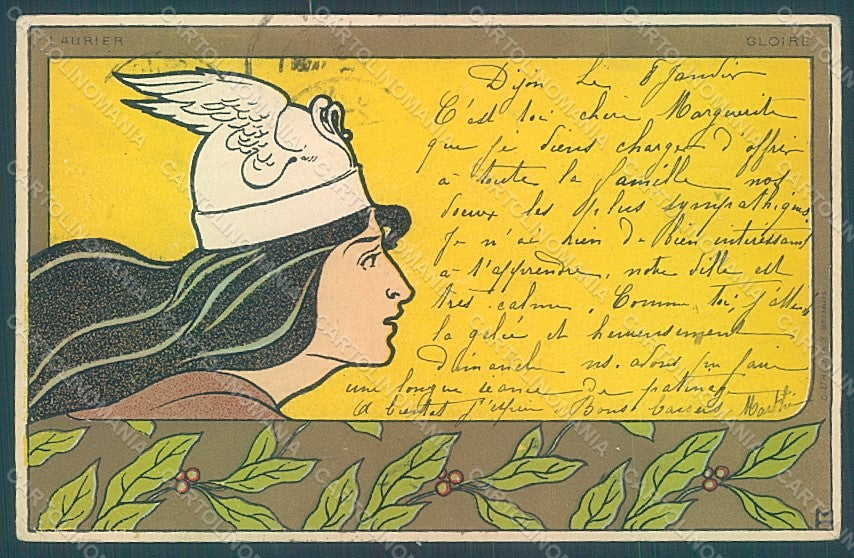 LAURIER
GLOIRE
Dijon le 8 Janvier
C'est toi chère Marguerite
que je viens charger d'offrir
à toute la famille nos
voeux les plus sympathiques.
Je n'ai rien de bien intéressant
à t'apprendre, notre ville est
très calme. Comme toi, j'attends
la gelée et heureusement
dimanche ns. avons pu faire
une longue séance de patinage
A bientôt j'espère. Bons baisers
CARTOLINOMANIA